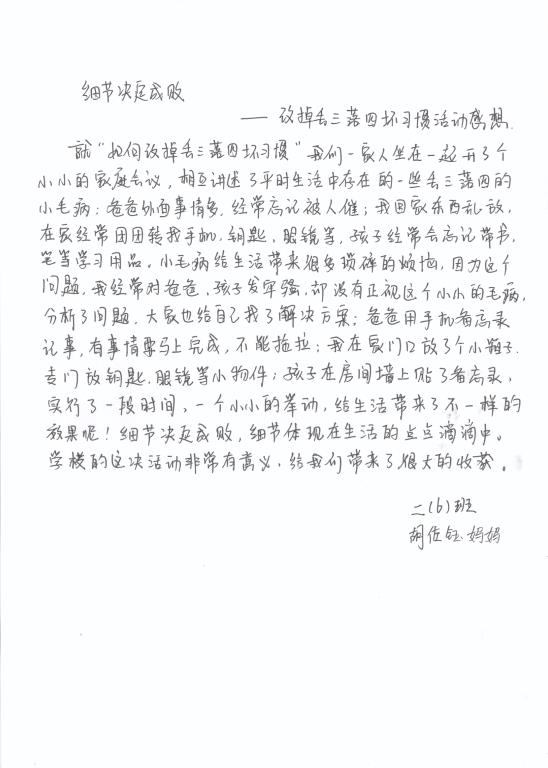 细节决定成败
—— 改掉丢三落四坏习惯活动感想.
就“如何改掉丢三落四坏习惯”我们一家人坐在一起开了个
小小的家庭会议，相互讲述了平时生活中存在的一些丢三落四的
小毛病：爸爸外面事情多，经常忘记被人催；我因家东西乱放，
在家经常团团转找手机，钥匙、眼镜等，孩子经常会忘记带书，
笔等学习用品。小毛病给生活带来很多琐碎的烦恼，因为这个
问题，我经常对爸爸、孩子发牢骚，却没有正视这个小小的毛病，
分析了问题，大家也给自己找了解决方案：爸爸用手机备忘录
记事，有事情要马上完成，不能拖拉；我在家门口放了个小瓶子.
专门放钥匙.眼镜等小物件；孩子在房间墙上贴了备忘录，
实行了一段时间，一个小小的举动，给生活带来了不一样的
效果呢！细节决定成败，细节体现在生活的点点滴滴中。
学校的这次活动非常有意义，给我们带来了很大的收获。
二（6）班
胡佐钰妈妈